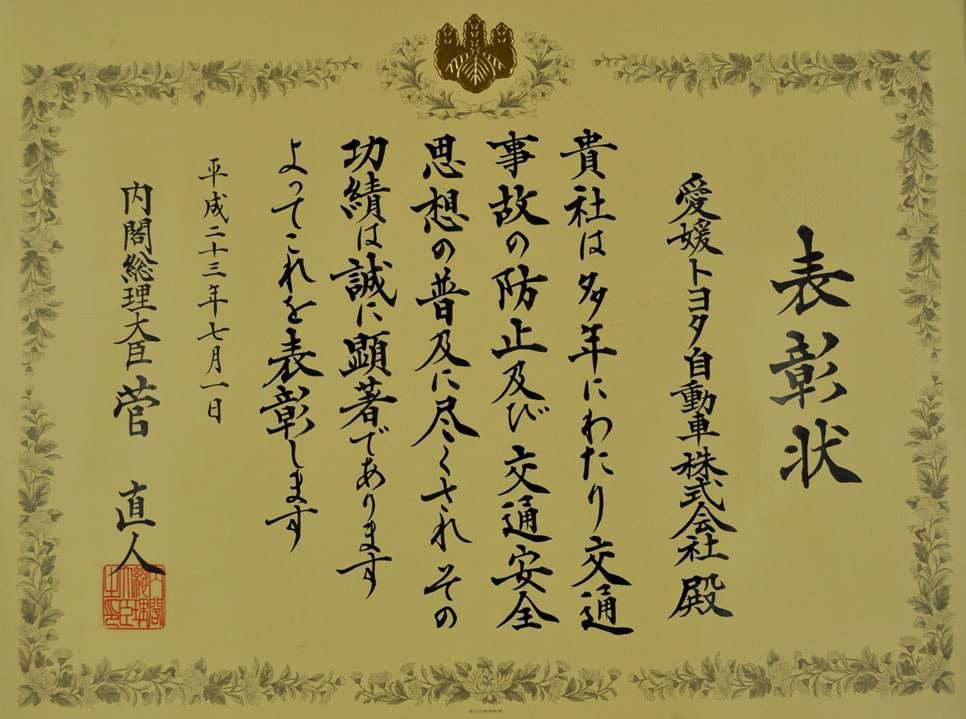 表彰状
愛媛トヨタ自動車株式会社 殿
貴社は多年にわたり交通
事故の防止及び交通安全
思想の普及に尽くされその
功績は誠に顕著であります
よってこれを表彰します
平成二十三年七月一日
内閣総理大臣 菅 直人
内閣総理大臣之印